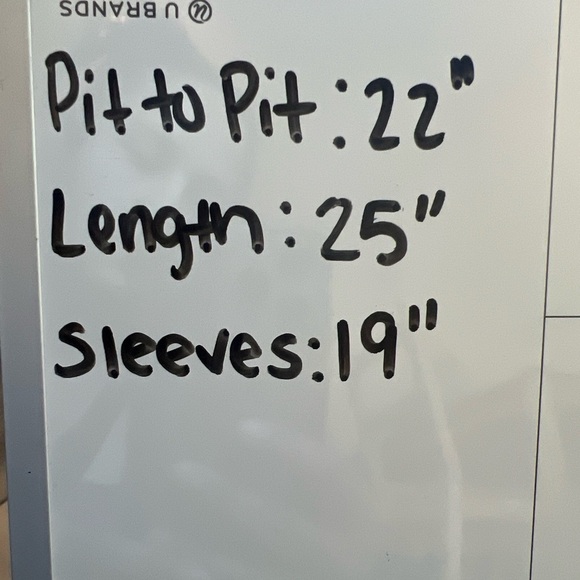 U BRANDS
Pit to Pit: 22"
Length: 25"
Sleeves: 19"